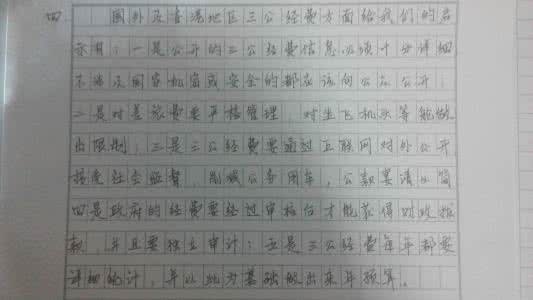 四 国外及香港地区三公经费方面给我们的启
示有:一是公开的三公经费信息必须十分详细
不涉及国家机密或安全的都应该向公众公开;
二是对差旅费要严格管理,对坐飞机头等舱做
出限制;三是三公经费要通过互联网对外公开
接受社会监督,削减公务用车,公款宴请从简
四是政府的经费要经过审核后才能获得财政拨
款,并且要独立审计;五是三公经费每年都要
详细统计,并以此为基础做出来年预算。